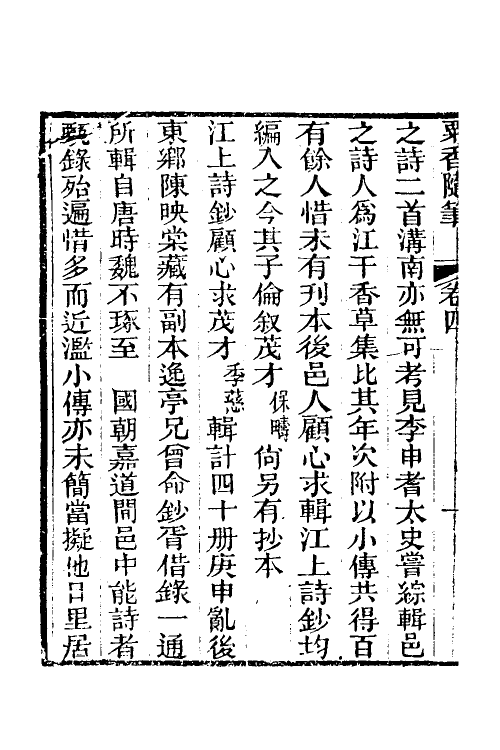 粟香隨筆　卷四
之詩二首溝南亦無可考見李申耆太史嘗綜輯邑
之詩人爲江干香草集比其年次附以小傳共得百
有餘人惜未有刊本後邑人顧心求輯江上詩鈔均
編入之今其子倫敘茂才保疇尙另有抄本
江上詩鈔顧心求茂才季慈輯計四十册庚申亂後
東鄉陳映棠藏有副本逸亭兄曾命鈔胥借錄一通
所輯自唐時魏不琢至　國朝嘉道間邑中能詩者
甄錄殆遍惜多而近濫小傳亦未簡當擬他日里居